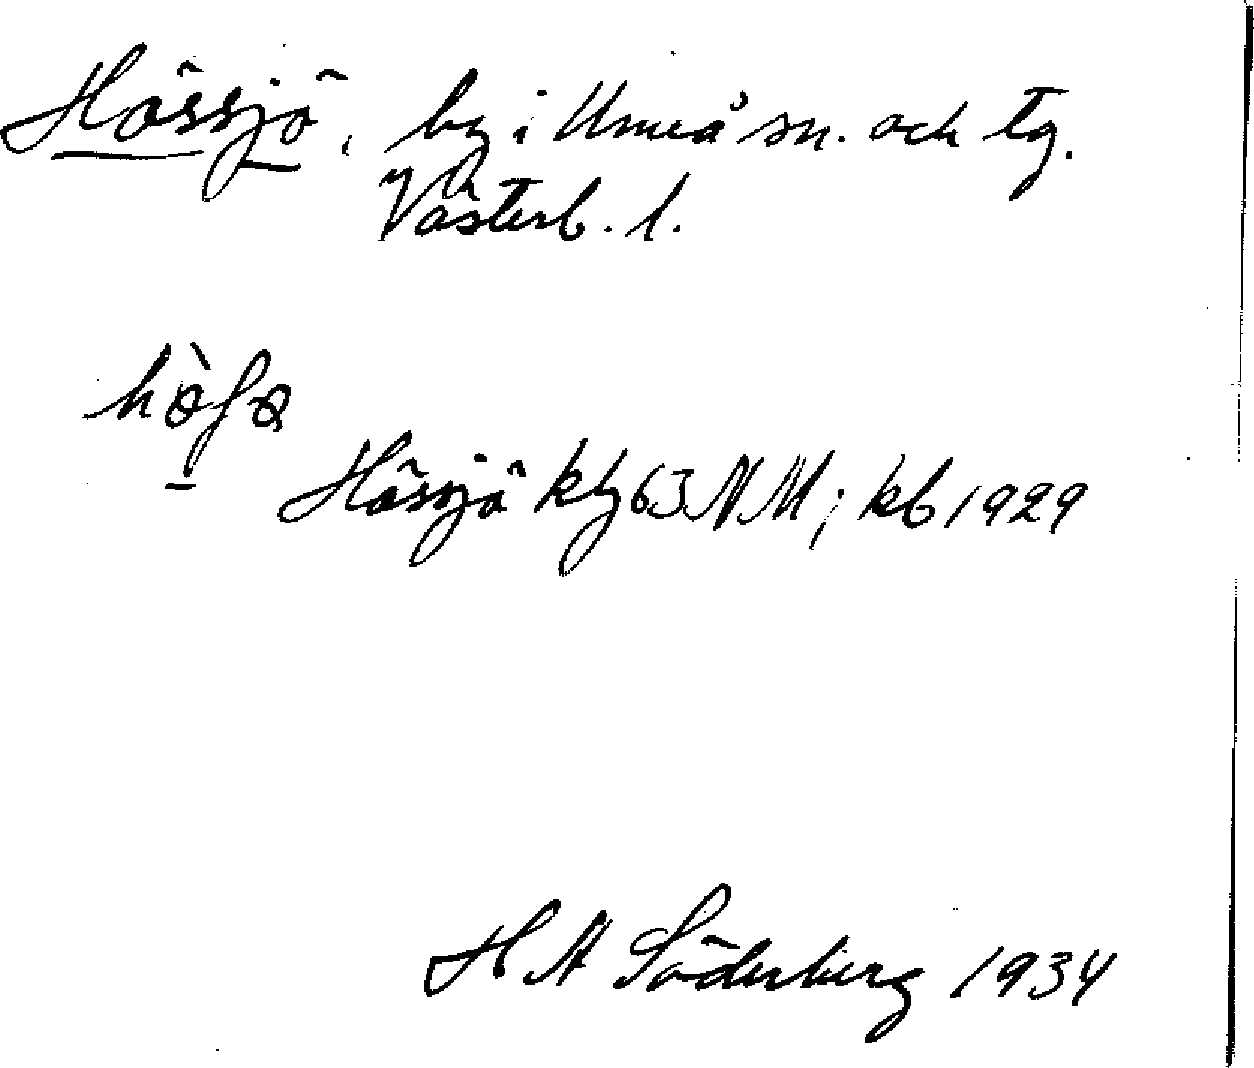 Hössjö, by i Umeå sn. och tg.
Västerb. l.
Hössjö kbg 63 NM; kb 1929
H A Söderberg 1934